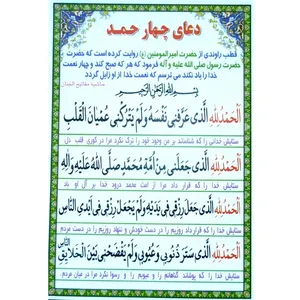 دعای چهار حمد
قطب راوندی از حضرت امیرالمومنین (ع) روایت کرده است که حضرت
حضرت رسول صلی الله علیه و آله فرمود که هر که صبح کند و چهار نعمت
خدا را یاد نکند می ترسم که نعمت خدا از او زایل گردد
حاشیه مفاتیح الجنان
بِسْمِ اللهِ الرَّحْمنِ الرَّحيمِ
اَلْحَمْدُ لِلّهِ الَّذى عَرَّفَنى نَفْسَهُ وَ لَمْ يَتْرُكْنى عُمْيانَ الْقَلْبِ
ستایش خدائی را که شناساند به من وجود خود را و ترک نکرد مرا در کوری قلب دل
اَلْحَمْدُ لِلّهِ الَّذى جَعَلَنى مِنْ اُمَّةِ مُحَمَّدٍ صَلَّى اللهُ عَلَيْهِ وَالِهِ
ستایش خدائی را که قرار داد مرا از امت محمد درود خدا بر آل او باد
اَلْحَمْدُ لِلّهِ الَّذى جَعَلَ رِزْقى فى يَدَيْهِ وَ لَمْ يَجْعَلْ رِزْقى فى اَيْدِى النّاسِ
ستایش خدائی را که قرار داد روزیم را در دست خودش و ننهاد روزیم را در دست مردم
اَلْحَمْدُ لِلّهِ الَّذى سَتَرَ ذُنُوبى وَ عُيُوبى وَ لَمْ يَفْضَحْنى بَيْنَ الْخَلايِقِ
النّاسِ
ستایش خدائی را که پوشاند گناهانم را و عیوبم را و رسوا نکرد مرا در میان مردم